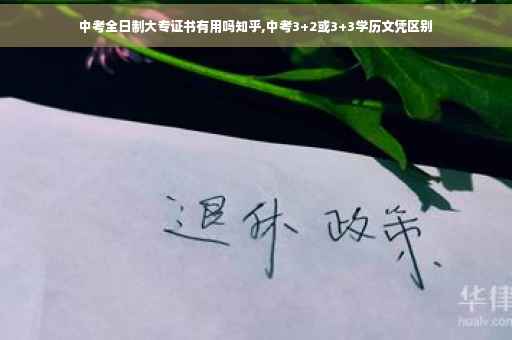 中考全日制大专证书有用吗知乎,中考3+2或3+3学历文凭区别
退休 政策
华律
hualv.com